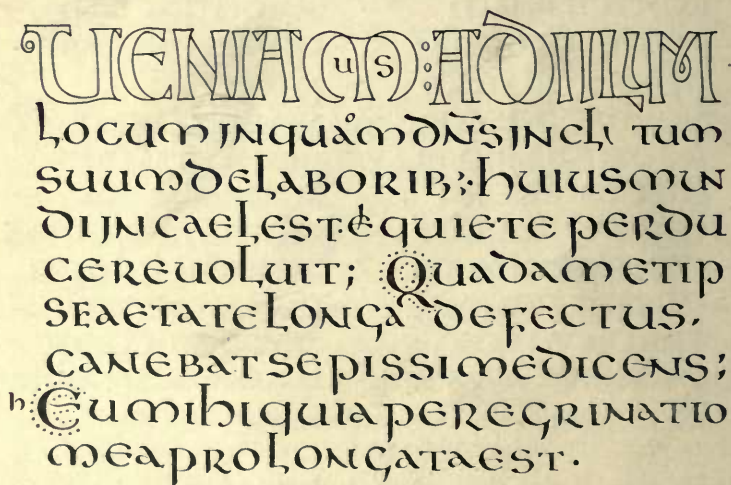 UENIAMus:ADILLUM
locum in quåm dn̄s incli tum
suum de laborib;· huius mun
di in caelest quiete perdu
cere uoluit; Quadam etip
se aetate longa defectus.
canebat sepissime dicens;
hEu mihi quia peregrinatio
mea prolongata est.